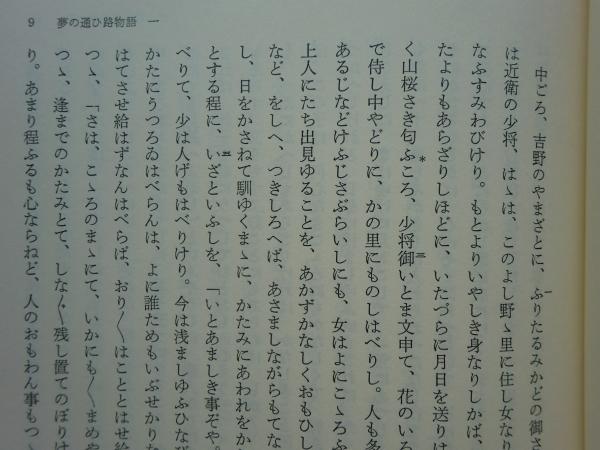 9　夢の通ひ路物語　一
中ごろ、吉野のやまざとに、ふりたるみかどの御さ
は近衛の少将、はゝは、このよし野ゝ里に住し女なり
なふすみわびけり。もとよりいやしき身なりしかば、
たよりもあらざりしほどに、いたづらに月日を送りは
く山桜さき匂ふころ、少将御いとま文申て、花のいろ
で侍し中やどりに、かの里にものしはべりし。人も多
あるじなどけふじさぶらいしにも、女はよにこゝろふ
上人にたち出見ゆることを、あかずかなしくおもひし
など、をしへ、つきしろへば、あさましながらもてな
し、日をかさねて馴ゆくまゝに、かたみにあわれをか
とする程に、いざといふふしを、「いとあましき事ぞや。
べりて、少は人げもはべりけり。今は浅ましゆふひなび
かたにうつろゐはべらんは、よに誰ためもいぶせかりな
はてさせ給はずなんはべらば、おり〳〵はこととはせ給
つゝ、「さは、こゝろのまゝにて、いかにも〳〵まめや
つゝ、逢までのかたみとて、しな〴〵残し置てのぼりけ
り。あまり程ふるも心ならねど、人のおもわん事もつゝ